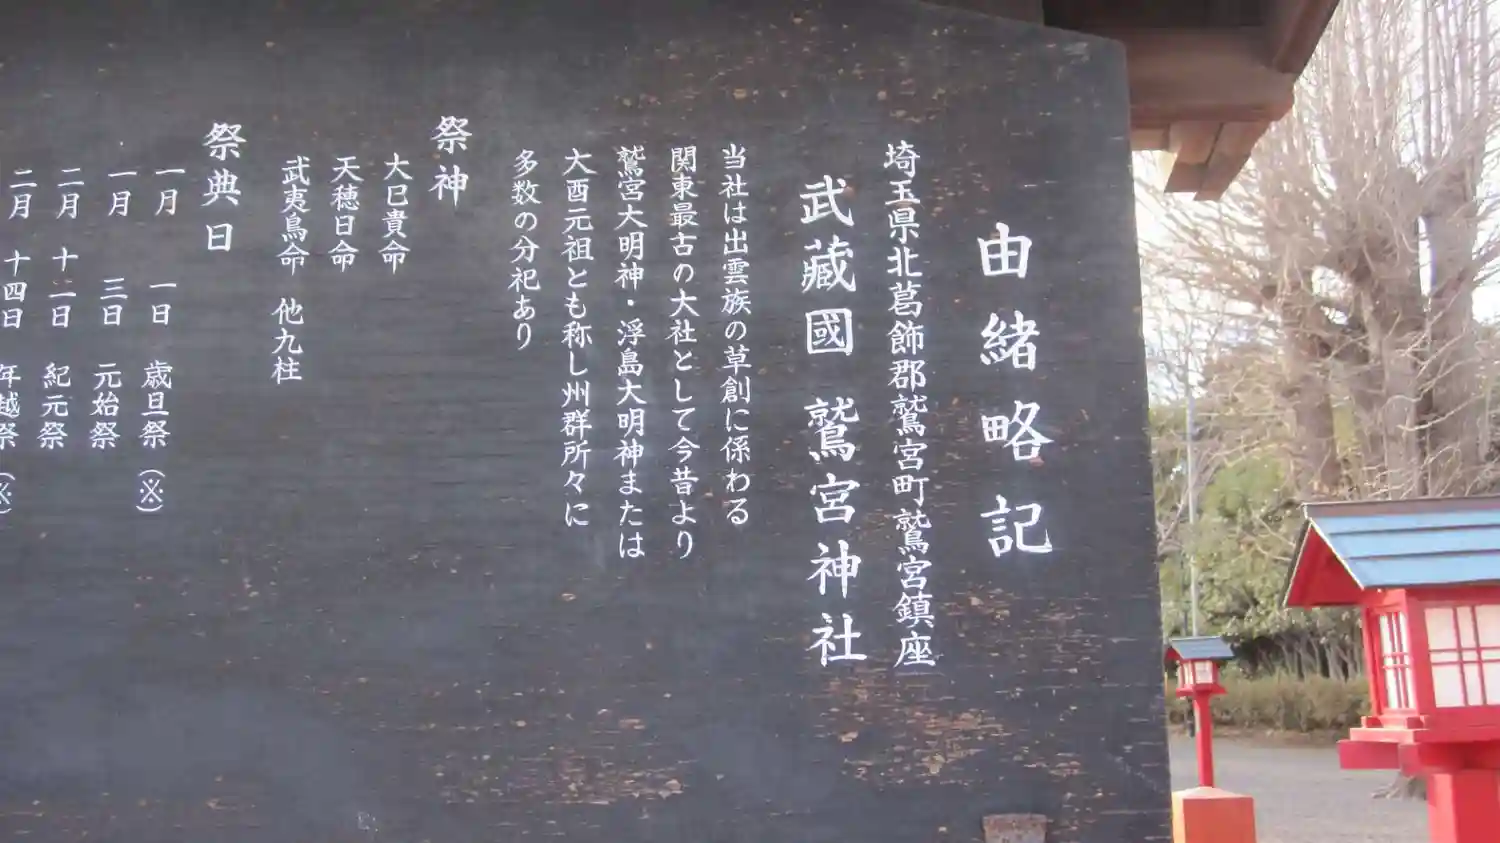 由緒略記
埼玉県北葛飾郡鷲宮町鷲宮鎮座
武藏國 鷲宮神社
当社は出雲族の草創に係わる
関東最古の大社として今昔より
鷲宮大明神・浮島大明神または
大酉元祖とも称し州群所々に
多数の分祀あり
祭神
大巳貴命
天穂日命
武夷鳥命 他九柱
祭典日
一月 一日 歳旦祭(※)
一月 三日 元始祭
二月 十一日 紀元祭
二月 十四日 年越祭(※)